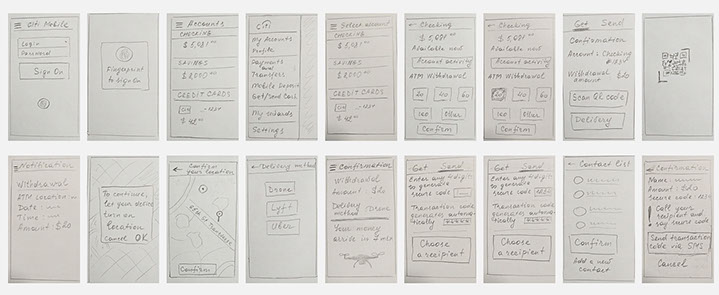 Citi Mobile
Login
Password
Sign On
Fingerprint
to Sign On
Accounts
CHECKING
SAVINGS
CREDIT CARDS
citi
My Accounts
Profile
Payments
Transfers
Mobile Deposit
Get/Send Cash
My rewards
Settings
Select account
CHECKING
SAVINGS
CREDIT CARDS
Checking
Available now
Account activity
ATM Withdrawal
20 40 60
100 Other
Confirm
Checking
Available now
Account activity
ATM Withdrawal
20 40 60
100 Other
Confirm
Get Send
Confirmation
Account: Checking
Withdrawal
amount $20
Scan QR code
Delivery
Notification
Withdrawal
ATM Location
Date :
Time :
Amount: $20
To continue,
let your device
turn on
location
Cancel OK
Confirm
your location
Confirm
Delivery method
Drone
Lyft
Uber
Confirmation
Withdrawal
Amount : $20
Delivery
method Drone
Your money
arrive in 5 min
Get Send
Enter any 4 digits
to generate
secure code
Transaction code
generates automa-
tically
Choose
a recipient
Get Send
Enter any 4 digits
to generate
secure code
Transaction code
generates automa-
tically
Choose
a recipient
Contact list
Confirm
Add a new
contact
Confirmation
Name :
Amount : $20
secure code : 1234
! Call your
recipient and
say secure code
Send transaction
code via SMS
Cancel